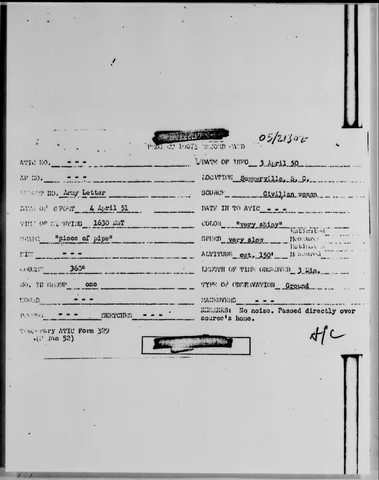 PROJECT 10073 RECORD CARD
05/21302
ATIC NO. - - - DATE OF INFO 3 April 50
AF NO. - - - LOCATION Summerville, S. C.
REPORT NO. Army Letter SOURCE Civilian woman
DATE OF REPORT 4 April 51 DATE IN TO ATIC - - -
TIME OF SIGHTING 1630 EST COLOR "very shiny"
SHAPE "piece of pipe" SPEED very slow
SIZE - - - ALTITUDE est. 150'
COURSE 360° LENGTH OF TIME OBSERVED 3 Min.
NO. IN GROUP one TYPE OF OBSERVATION Ground
SOUND - - - MANEUVERS - - -
PHOTOS - - - SKETCHES - - - REMARKS: No noise. Passed directly over
source's home.
A/C
Temporary ATIC Form 329
(2 Jan 52)